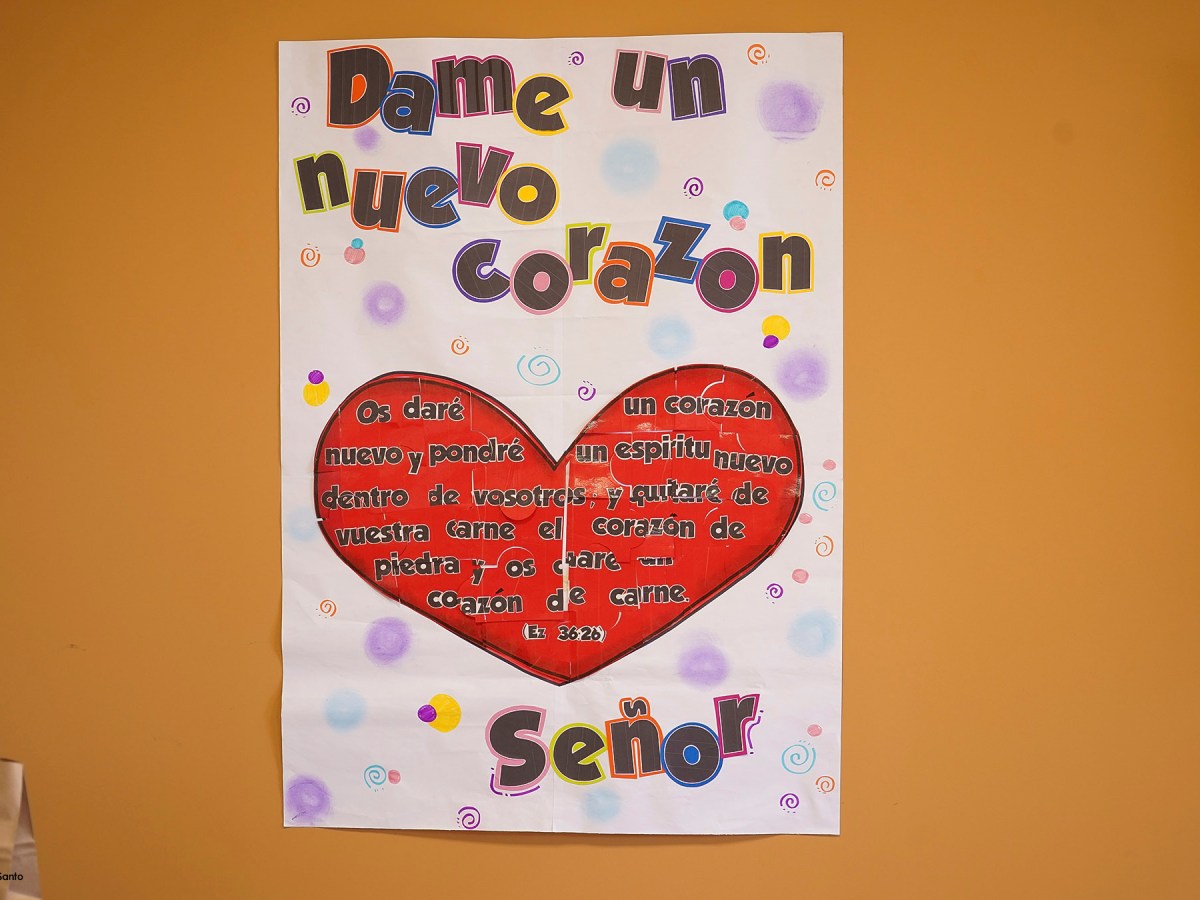 Dame un
nuevo
corazon
Os daré un corazón
nuevo y pondré un espiritu nuevo
dentro de vosotros, y quitaré de
vuestra carne el corazón de
piedra y os daré un
corazón de carne.
(Ez 36:26)
Señor
Santo